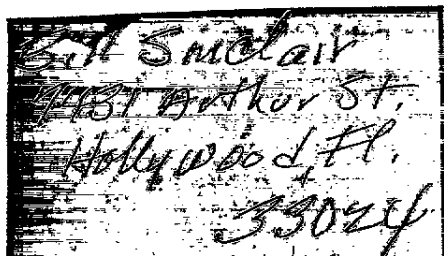 Bill Sinclair
Arthur St.
Hollywood Fl.
33024